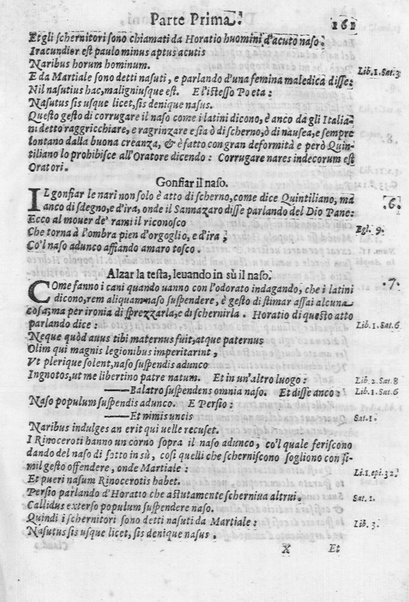 Parte Prima. 161
Et gli schernitori sono chiamati da Horatio huomini d'acuto naso.
Iracundior est paulo minus aptus acutis
Naribus horum hominum. Lib.1.Sat.3
E da Martiale sono detti nasuti, e parlando d'una femina maledica disse:
Nil nasutius hac, maligniusque est. E l'istesso Poeta:
Nasutus sis usque licet, sis denique nasus.
Questo gesto di corrugare il naso come i latini dicono, è anco da gli Italia-
ni detto raggricchiare, e ragrinzare e sia ò di scherno, ò di nausea, e sempre
lontano dalla buona creanza, & è fatto con gran deformità e però Quin-
tiliano lo prohibisce all'Oratore dicendo: Corrugare nares indecorum est
Oratori.
Gonfiar il naso.
IL gonfiar le nari non solo è atto di scherno, come dice Quintiliano, mà .6.
anco di sdegno, e d'ira, onde il Sannazaro disse parlando del Dio Pane:
Ecco al mouer de' rami il riconosco
Che torna à l'ombra pien d'orgoglio, e d'ira, Egl. 9.
Co'l naso adunco affiando amaro tosco.
Alzar la testa, leuando in sù il naso.
COme fanno i cani quando uanno con l'odorato indagando, che i latini .7.
dicono, rem aliquam naso suspendere, è gesto di stimar assai alcuna
cosa, ma per ironia di sprezzarla, e di schernirla. Horatio di questo atto
parlando dice: Lib.1.Sat.6.
Neque quòd auus tibi maternus fuit, atque paternus
Olim qui magnis legionibus imperitarint,
Vt plerique solent, naso suspendis adunco
Ingnotos, ut me libertino patre natum. Et in un'altro luogo: Lib 2.Sat.8
—Balatro suspendens omnia naso. Et disse anco: Lib.1.Sat.6
Naso populum suspendis adunco. E Persio:
—Et nimis uncis Sat.1.
Naribus indulges an erit qui uelle recuset.
I Rinoceroti hanno un corno sopra il naso adunco, co'l quale feriscono
dando del naso di sotto in sù, così quelli che scherniscono sogliono con si-
mil gesto offendere, onde Martiale: Li.1.epi.32.
Et pueri nasum Rinocerotis habet.
Persio parlando d'Horatio che astutamente scherniua altrui. Sat.1.
Callidus excusso populum suspendere naso.
Quindi i schernitori sono detti nasuti da Martiale: Lib.3.
Nasutus sis usque licet, sis denique nasus.
X Et